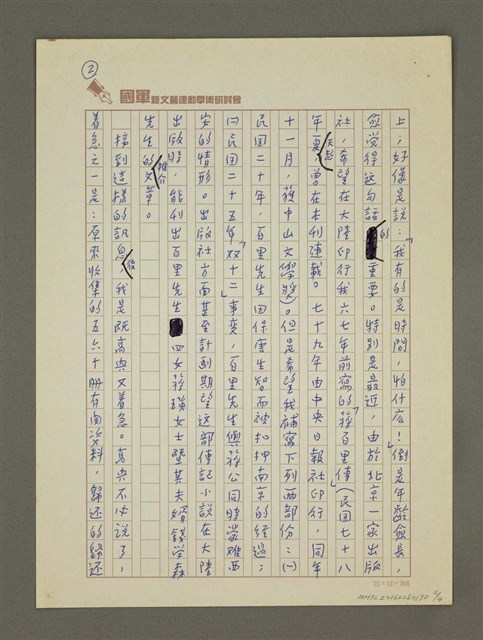 ②
國軍新文藝運動學術研討會
上;好像是說:「我有的是時間,怕什麼!」倒是年齡愈長,
愈覺得這句話的重要。特別是最近,由於北京一家出版
社,希望在大陸印行我六七年前寫的「蔣百里傳」(民國七十八
年夏天起,曾在本刊連載。七十九年由中央日報社印行,同年
十一月,獲中山文學獎)。但是希望我補寫下列兩部份:㈠
民國二十年,百里先生因保唐生智而被扣押南京的經過;
㈡民國二十五年「双十二」事变,百里先生與蔣公同時蒙难西
安的情形。出版社方面甚至計劃期望这部傳記小說在大陸
出版時,能刊出百里先生四女蔣瑛女士暨其夫婿錢学森
先生的推介文章。
接到這樣的訊息後,我是既高興又着急。高興不必說了,
着急之一是:原來收集的五六十冊有関資料,歸还的歸还
25×12=300
NMTL20160260190 2/4